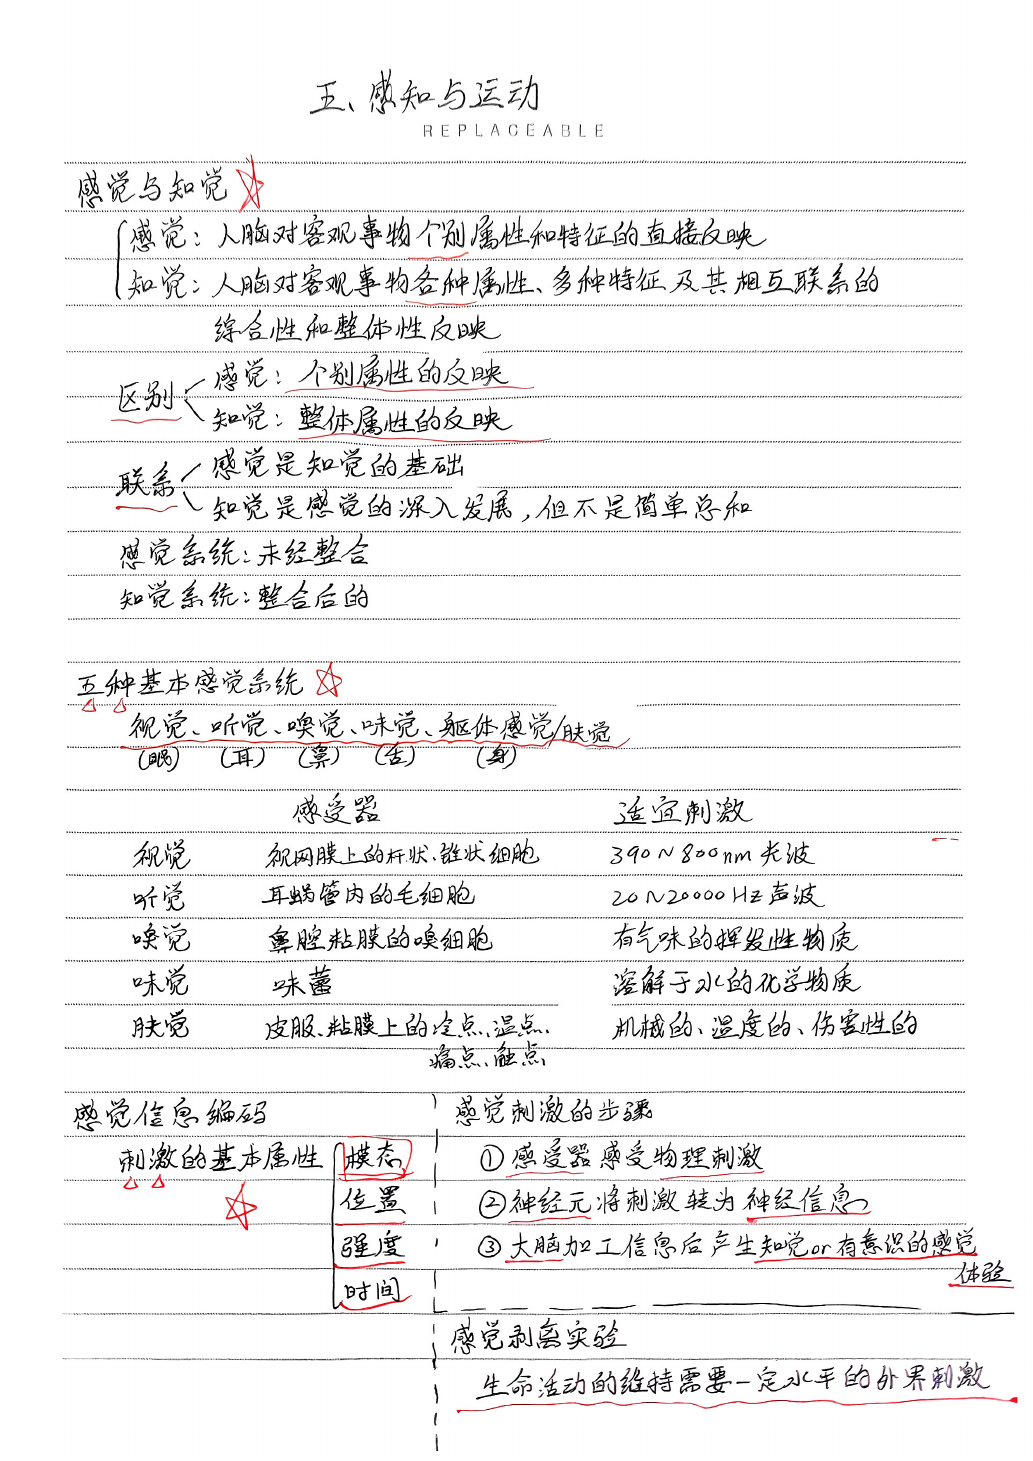 五、感知与运动
REPLACEABLE
感觉与知觉
感觉：人脑对客观事物个别属性和特征的直接反映
知觉：人脑对客观事物各种属性、多种特征及其相互联系的
综合性和整体性反映
区别
感觉：个别属性的反映
知觉：整体属性的反映
联系
感觉是知觉的基础
知觉是感觉的深入发展，但不是简单总和
感觉系统：未经整合
知觉系统：整合后的
五种基本感觉系统
视觉、听觉、嗅觉、味觉、躯体感觉/肤觉
(眼) (耳) (鼻) (舌) (身)
感受器 适宜刺激
视觉 视网膜上的杆状、锥状细胞 390~800nm光波
听觉 耳蜗管内的毛细胞 20~20000HZ声波
嗅觉 鼻腔粘膜的嗅细胞 有气味的挥发性物质
味觉 味蕾 溶解于水的化学物质
肤觉 皮肤、粘膜上的冷点、温点、 机械的、温度的、伤害性的
痛点、触点
感觉信息编码
刺激的基本属性
模态
位置
强度
时间
感觉刺激的步骤
①感受器感受物理刺激
②神经元将刺激转为神经信息
③大脑加工信息后产生知觉or有意识的感觉
体验
感觉剥离实验
生命活动的维持需要一定水平的外界刺激